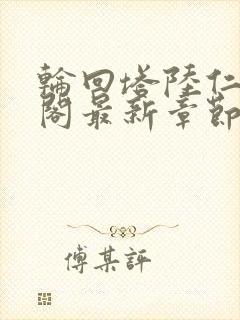 輪回塔陸仁
閣最新章節
傅某評